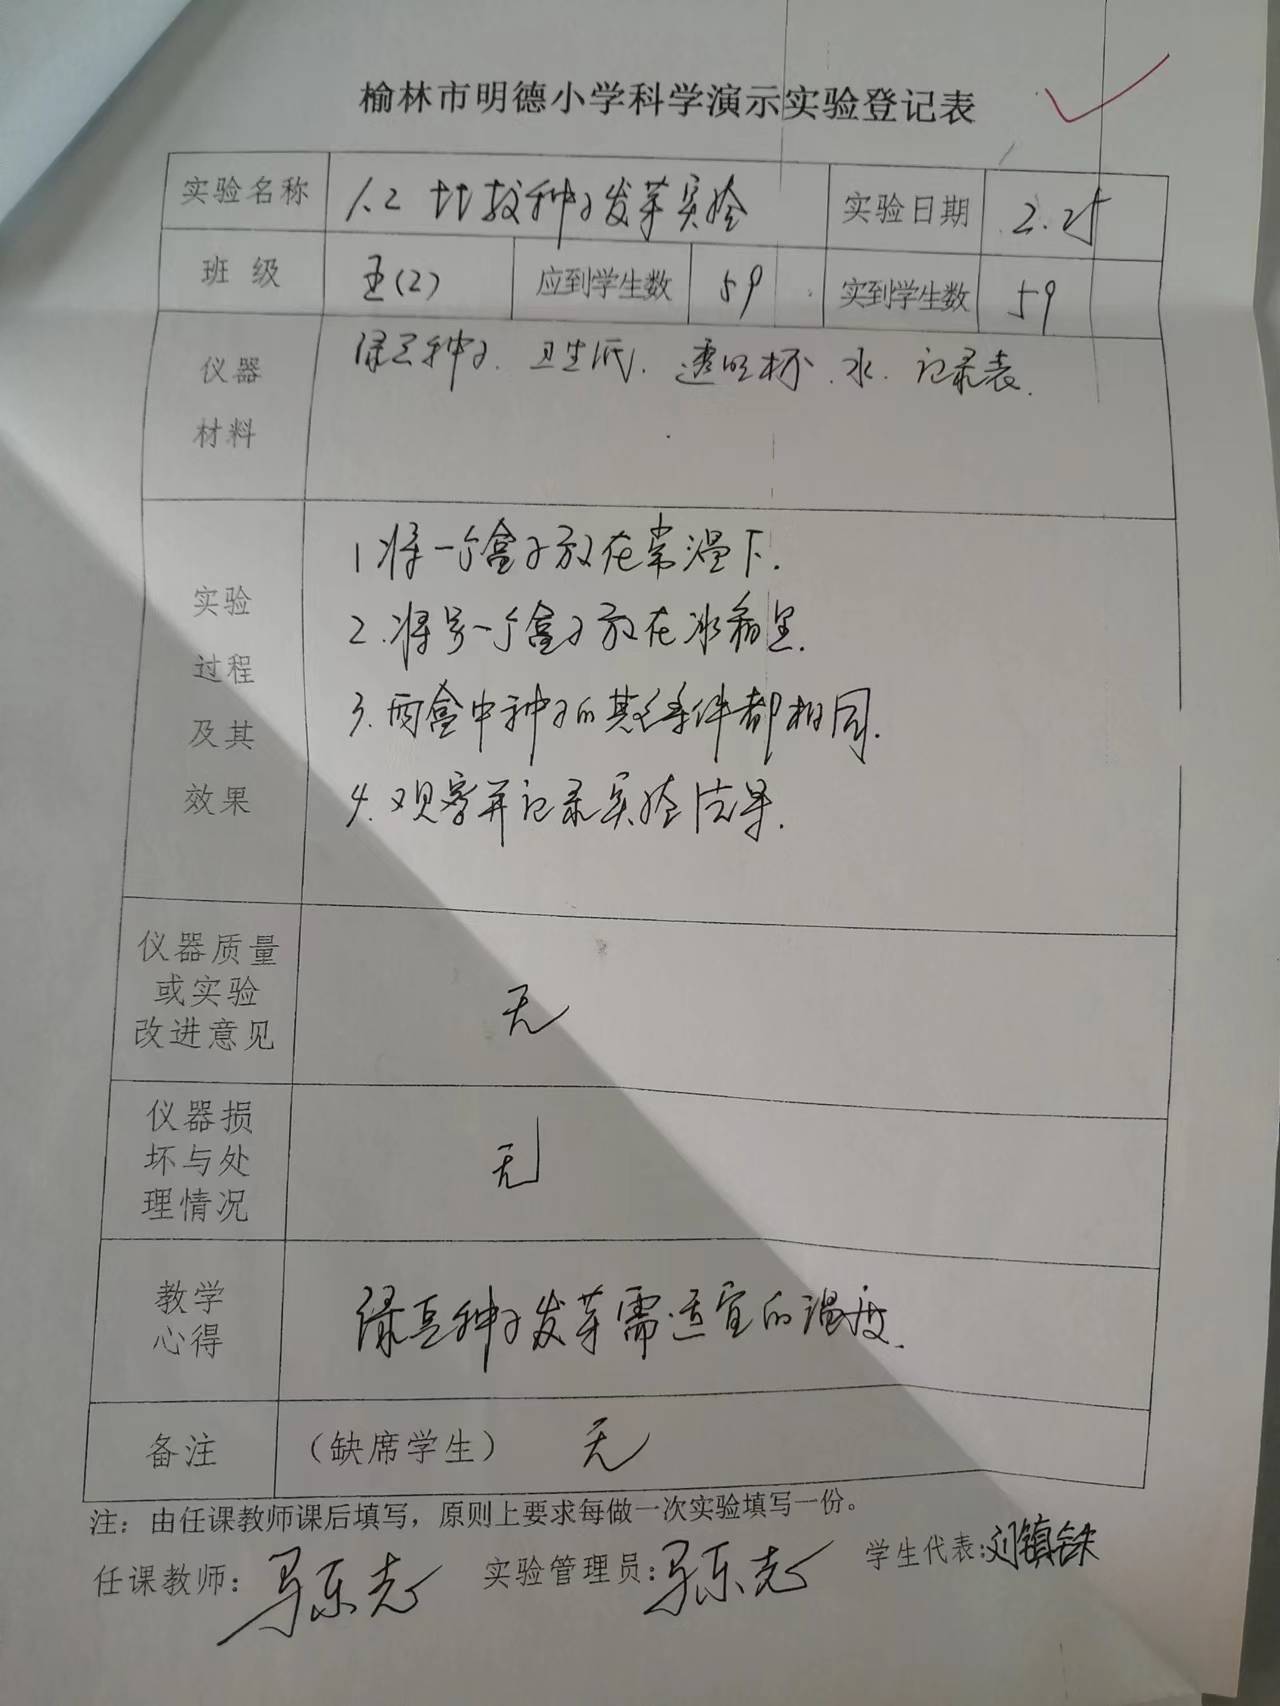 榆林市明德小学科学演示实验登记表
实验名称 1.2 比较种子发芽实验 实验日期 2.25
班级 五(2) 应到学生数 59 实到学生数 59
仪器材料 绿豆种子、卫生纸、透明杯、水、记录表.
实验过程及其效果
1 将一个盒子放在常温下.
2. 将另一个盒子放在冰箱里.
3. 两盒中种子的其它条件都相同.
4. 观察并记录实验结果.
仪器质量
或实验
改进意见
无
仪器损
坏与处
理情况
无
教学
心得
绿豆种子发芽需适宜的温度.
备注 (缺席学生) 无
注：由任课教师课后填写，原则上要求每做一次实验填写一份。
任课教师：马东志 实验管理员：马东志 学生代表：刘镇铗